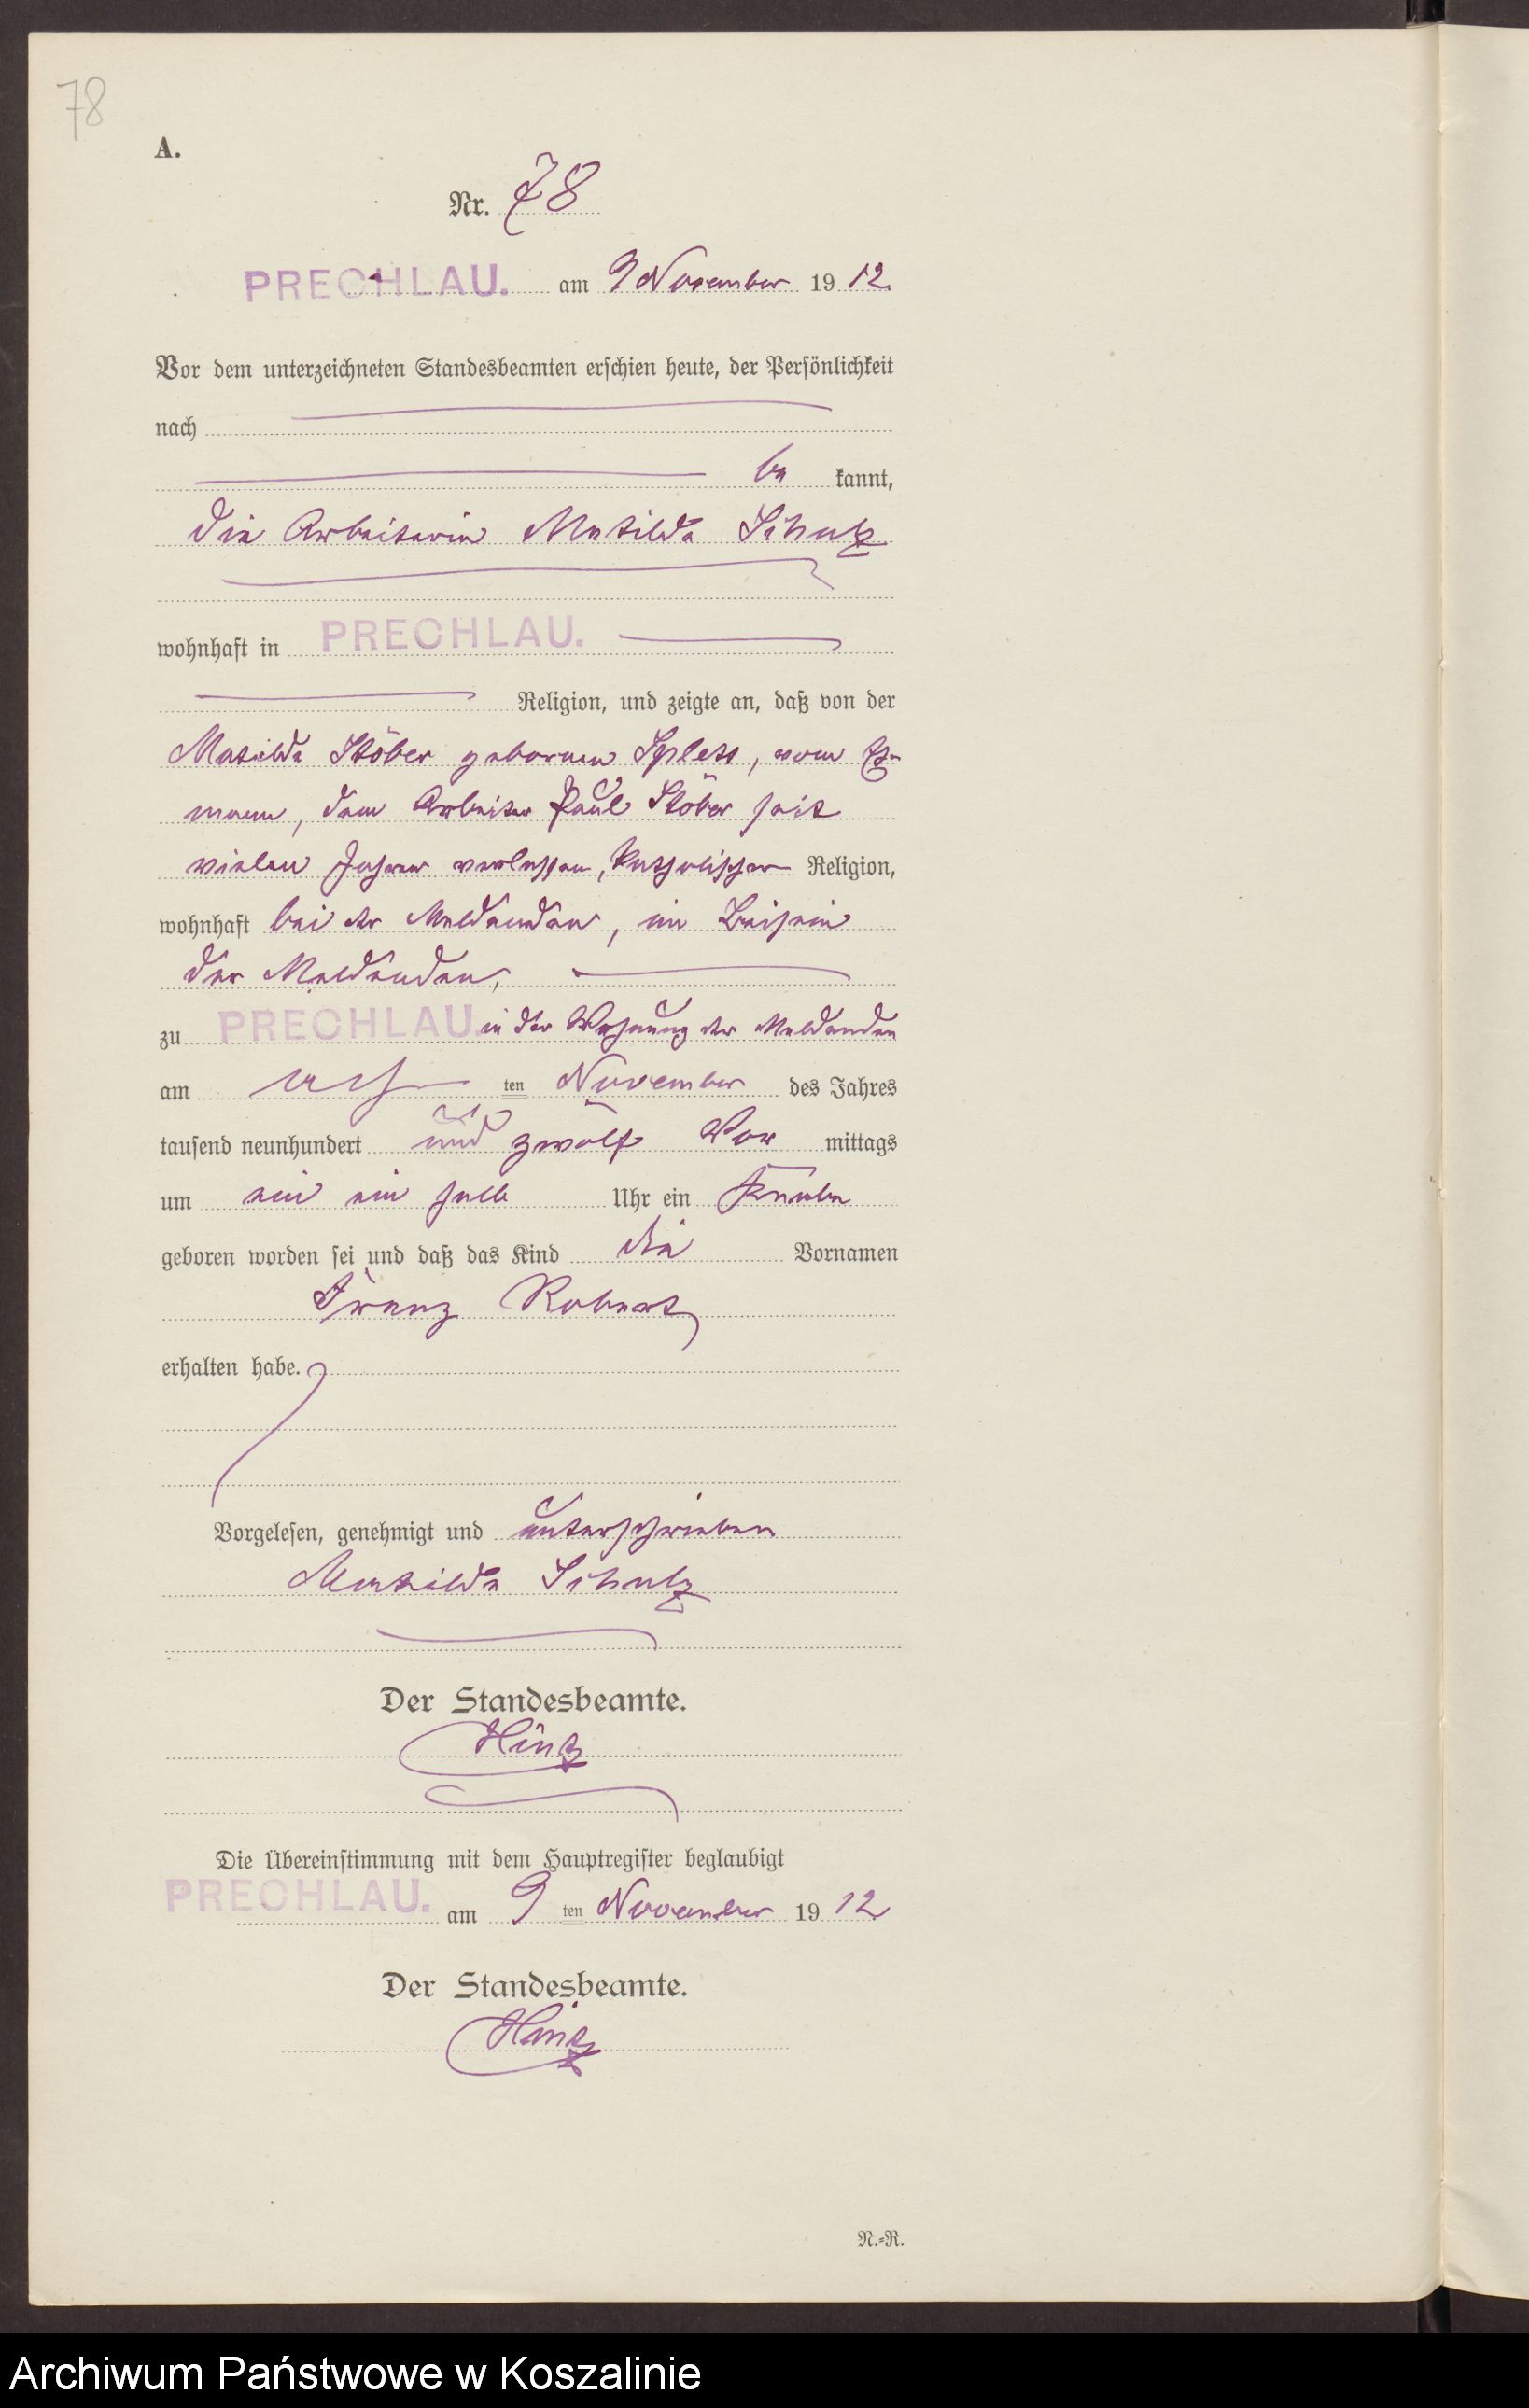 78
A.
Nr. 78
PRECHLAU. am 9 November 1912.
Vor dem unterzeichneten Standesbeamten erschien heute, der Persönlichkeit
nach
be kannt,
die Arbeiterin Matilde Schulz
wohnhaft in PRECHLAU.
Religion, und zeigte an, daß von der
Matilde Stöber geborenen , vom Ehe-
mann, dem Arbeiter Paul Stöber seit
vielen Jahren verlassen, katholischer Religion,
wohnhaft bei der Meldenden, im Beisein
der Meldenden,
zu PRECHLAU. in der Wohnung der Meldenden
am acht ten November des Jahres
tausend neunhundert und zwölf Vor mittags
um ein ein halb Uhr ein Knabe
geboren worden sei und daß das Kind die Vornamen
Franz Robert
erhalten habe.
Vorgelesen, genehmigt und unterschrieben
Matilde Schulz
Der Standesbeamte.
Hintz
Die Übereinstimmung mit dem Hauptregister beglaubigt
PRECHLAU. am 9 ten November 1912
Der Standesbeamte.
Hintz
N.=R.
Archiwum Państwowe w Koszalinie